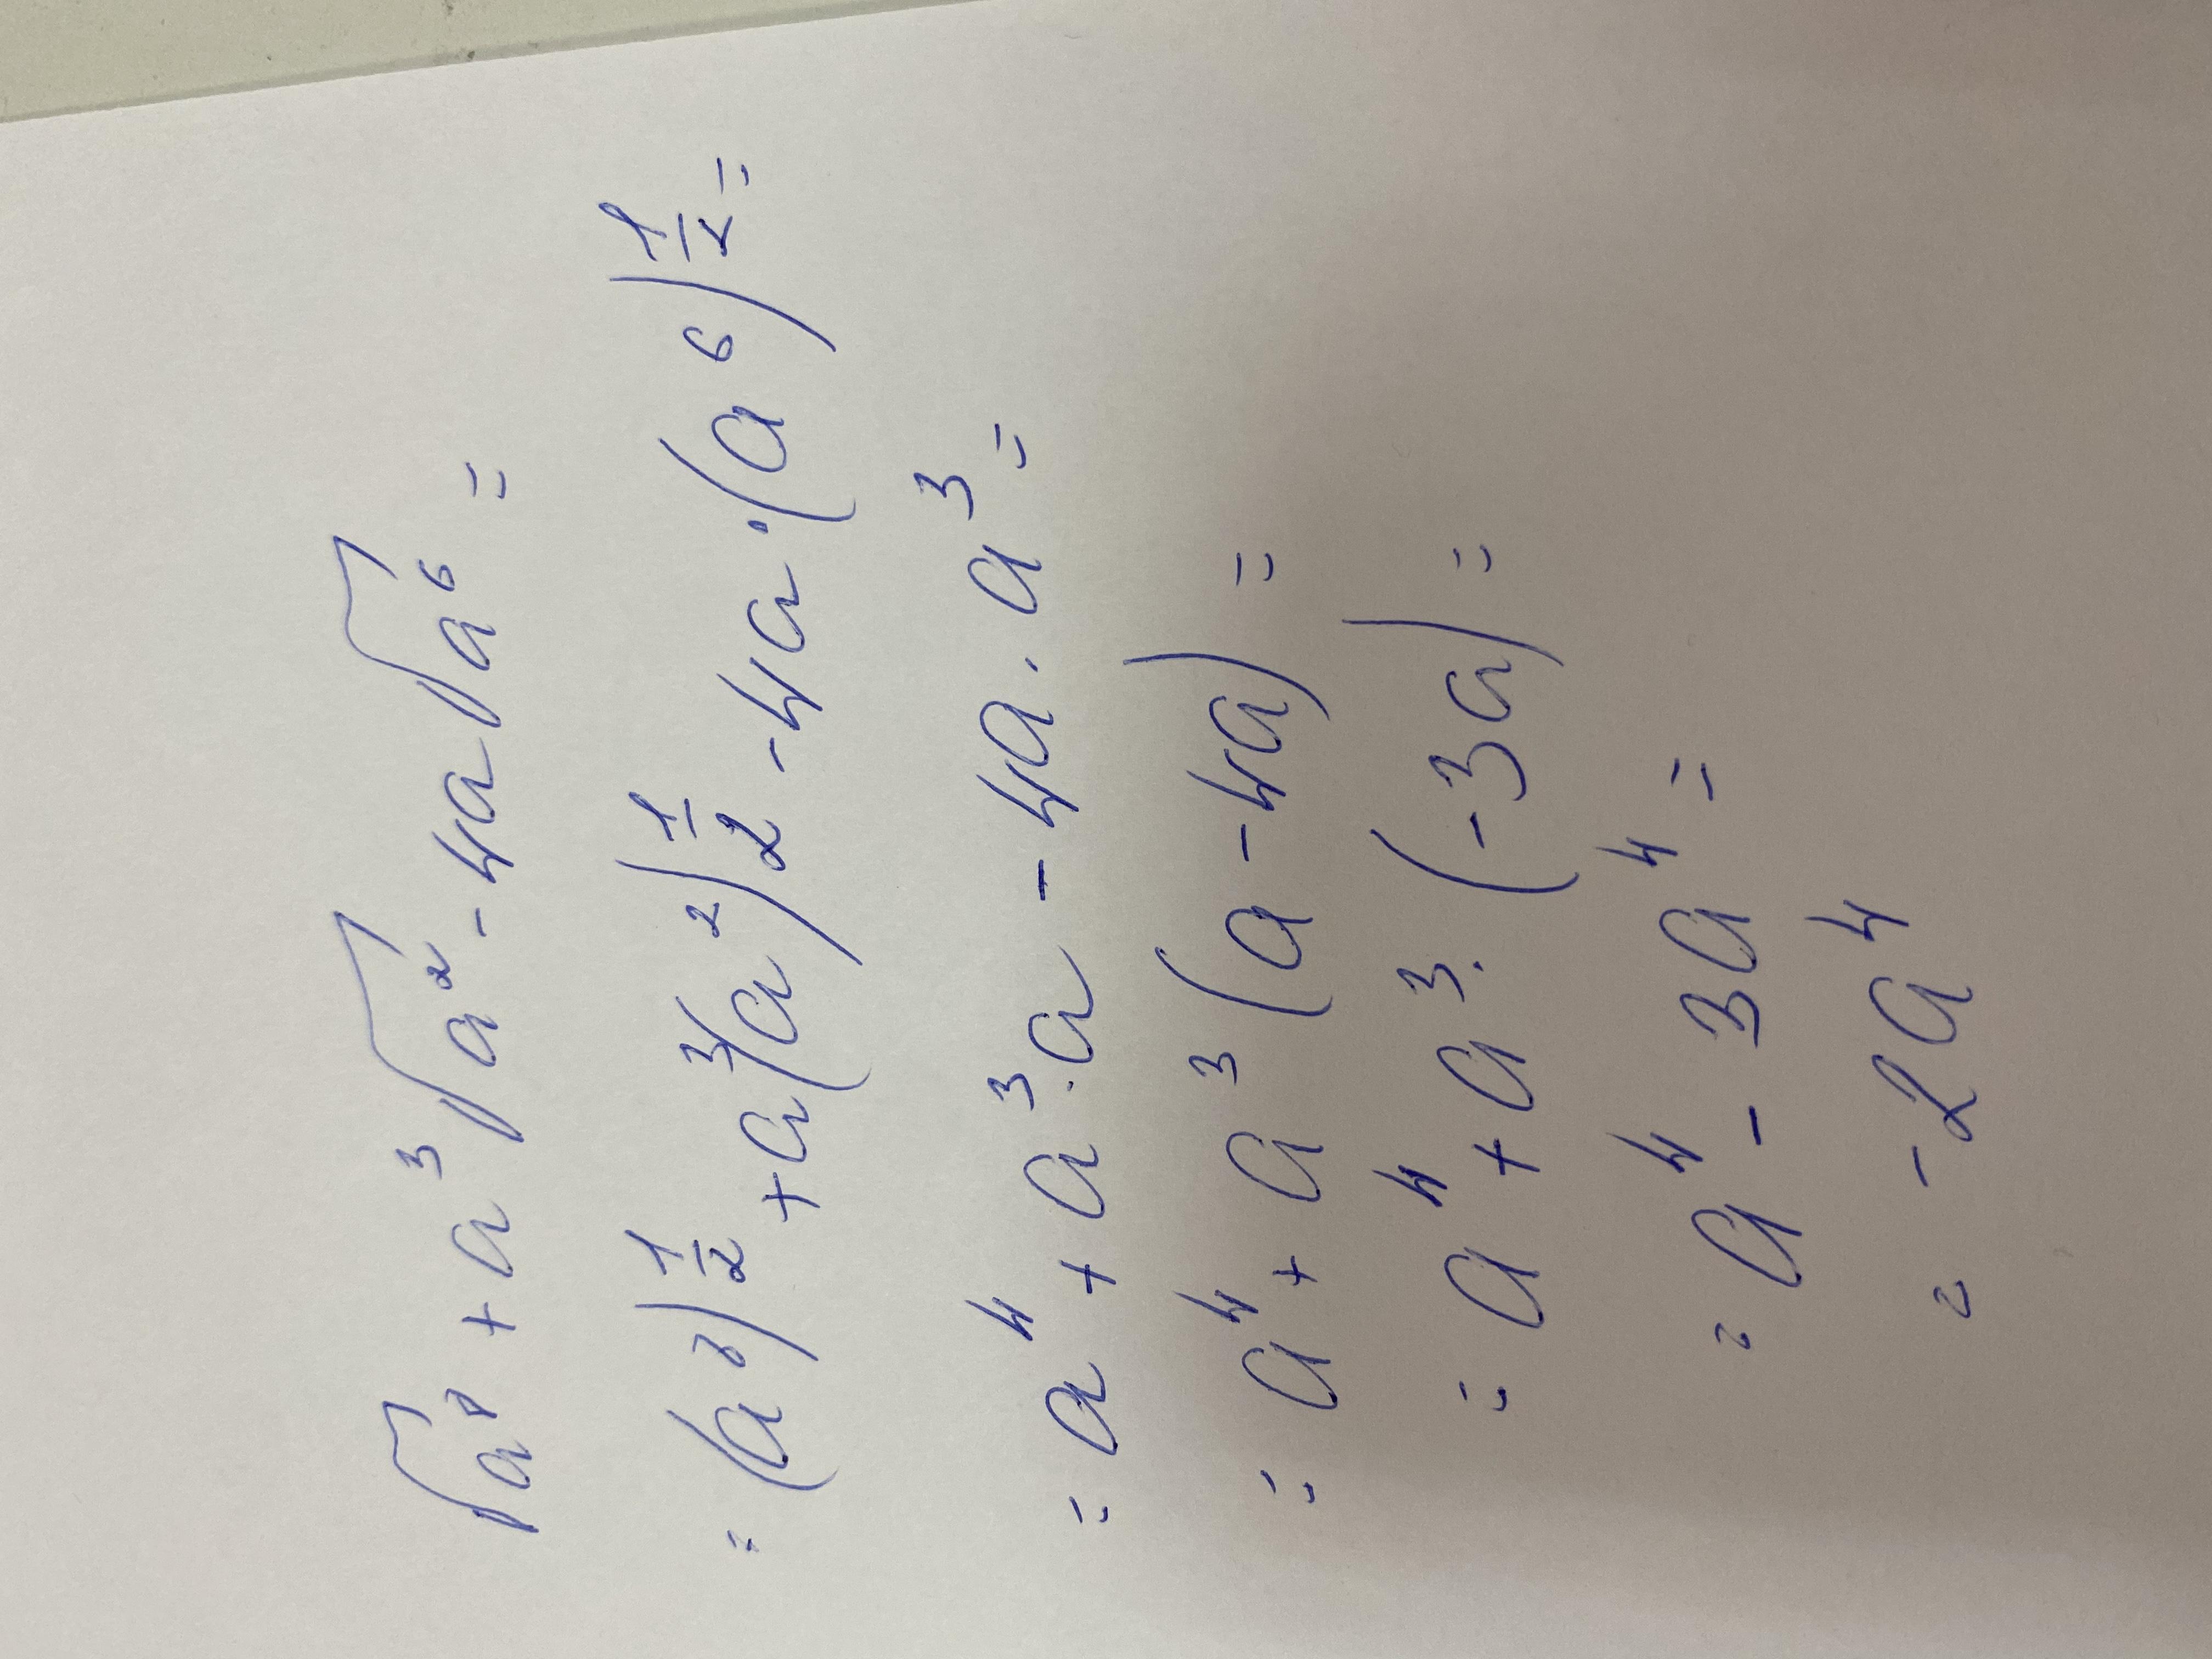 √a⁸ + a³√a² - 4a√a⁶ =
= (a⁸)^½ + a³(a²)^½ - 4a·(a⁶)^½ =
= a⁴ + a³·a - 4a·a³ =
= a⁴ + a³(a - 4a) =
= a⁴ + a³·(-3a) =
= a⁴ - 3a⁴ =
= -2a⁴